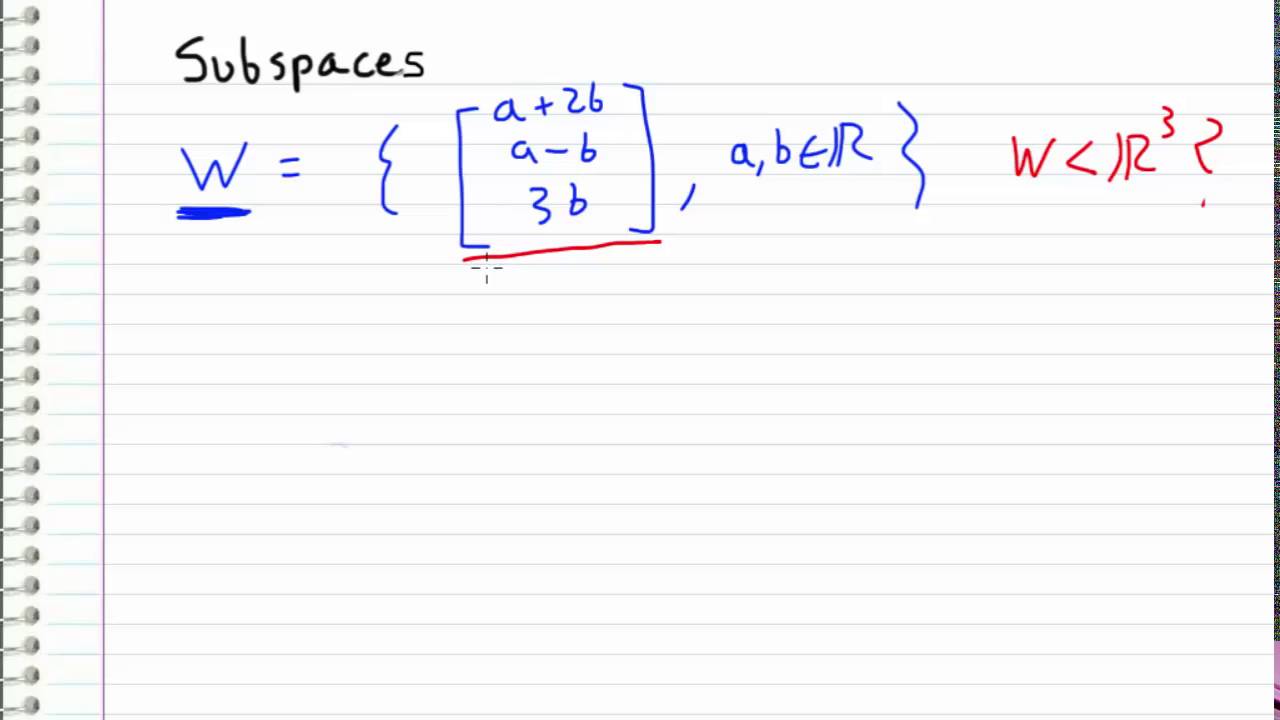 Subspaces
W = { [ a + 2b
a - b
3b ] , a, b ∈ ℝ } W < ℝ³ ?